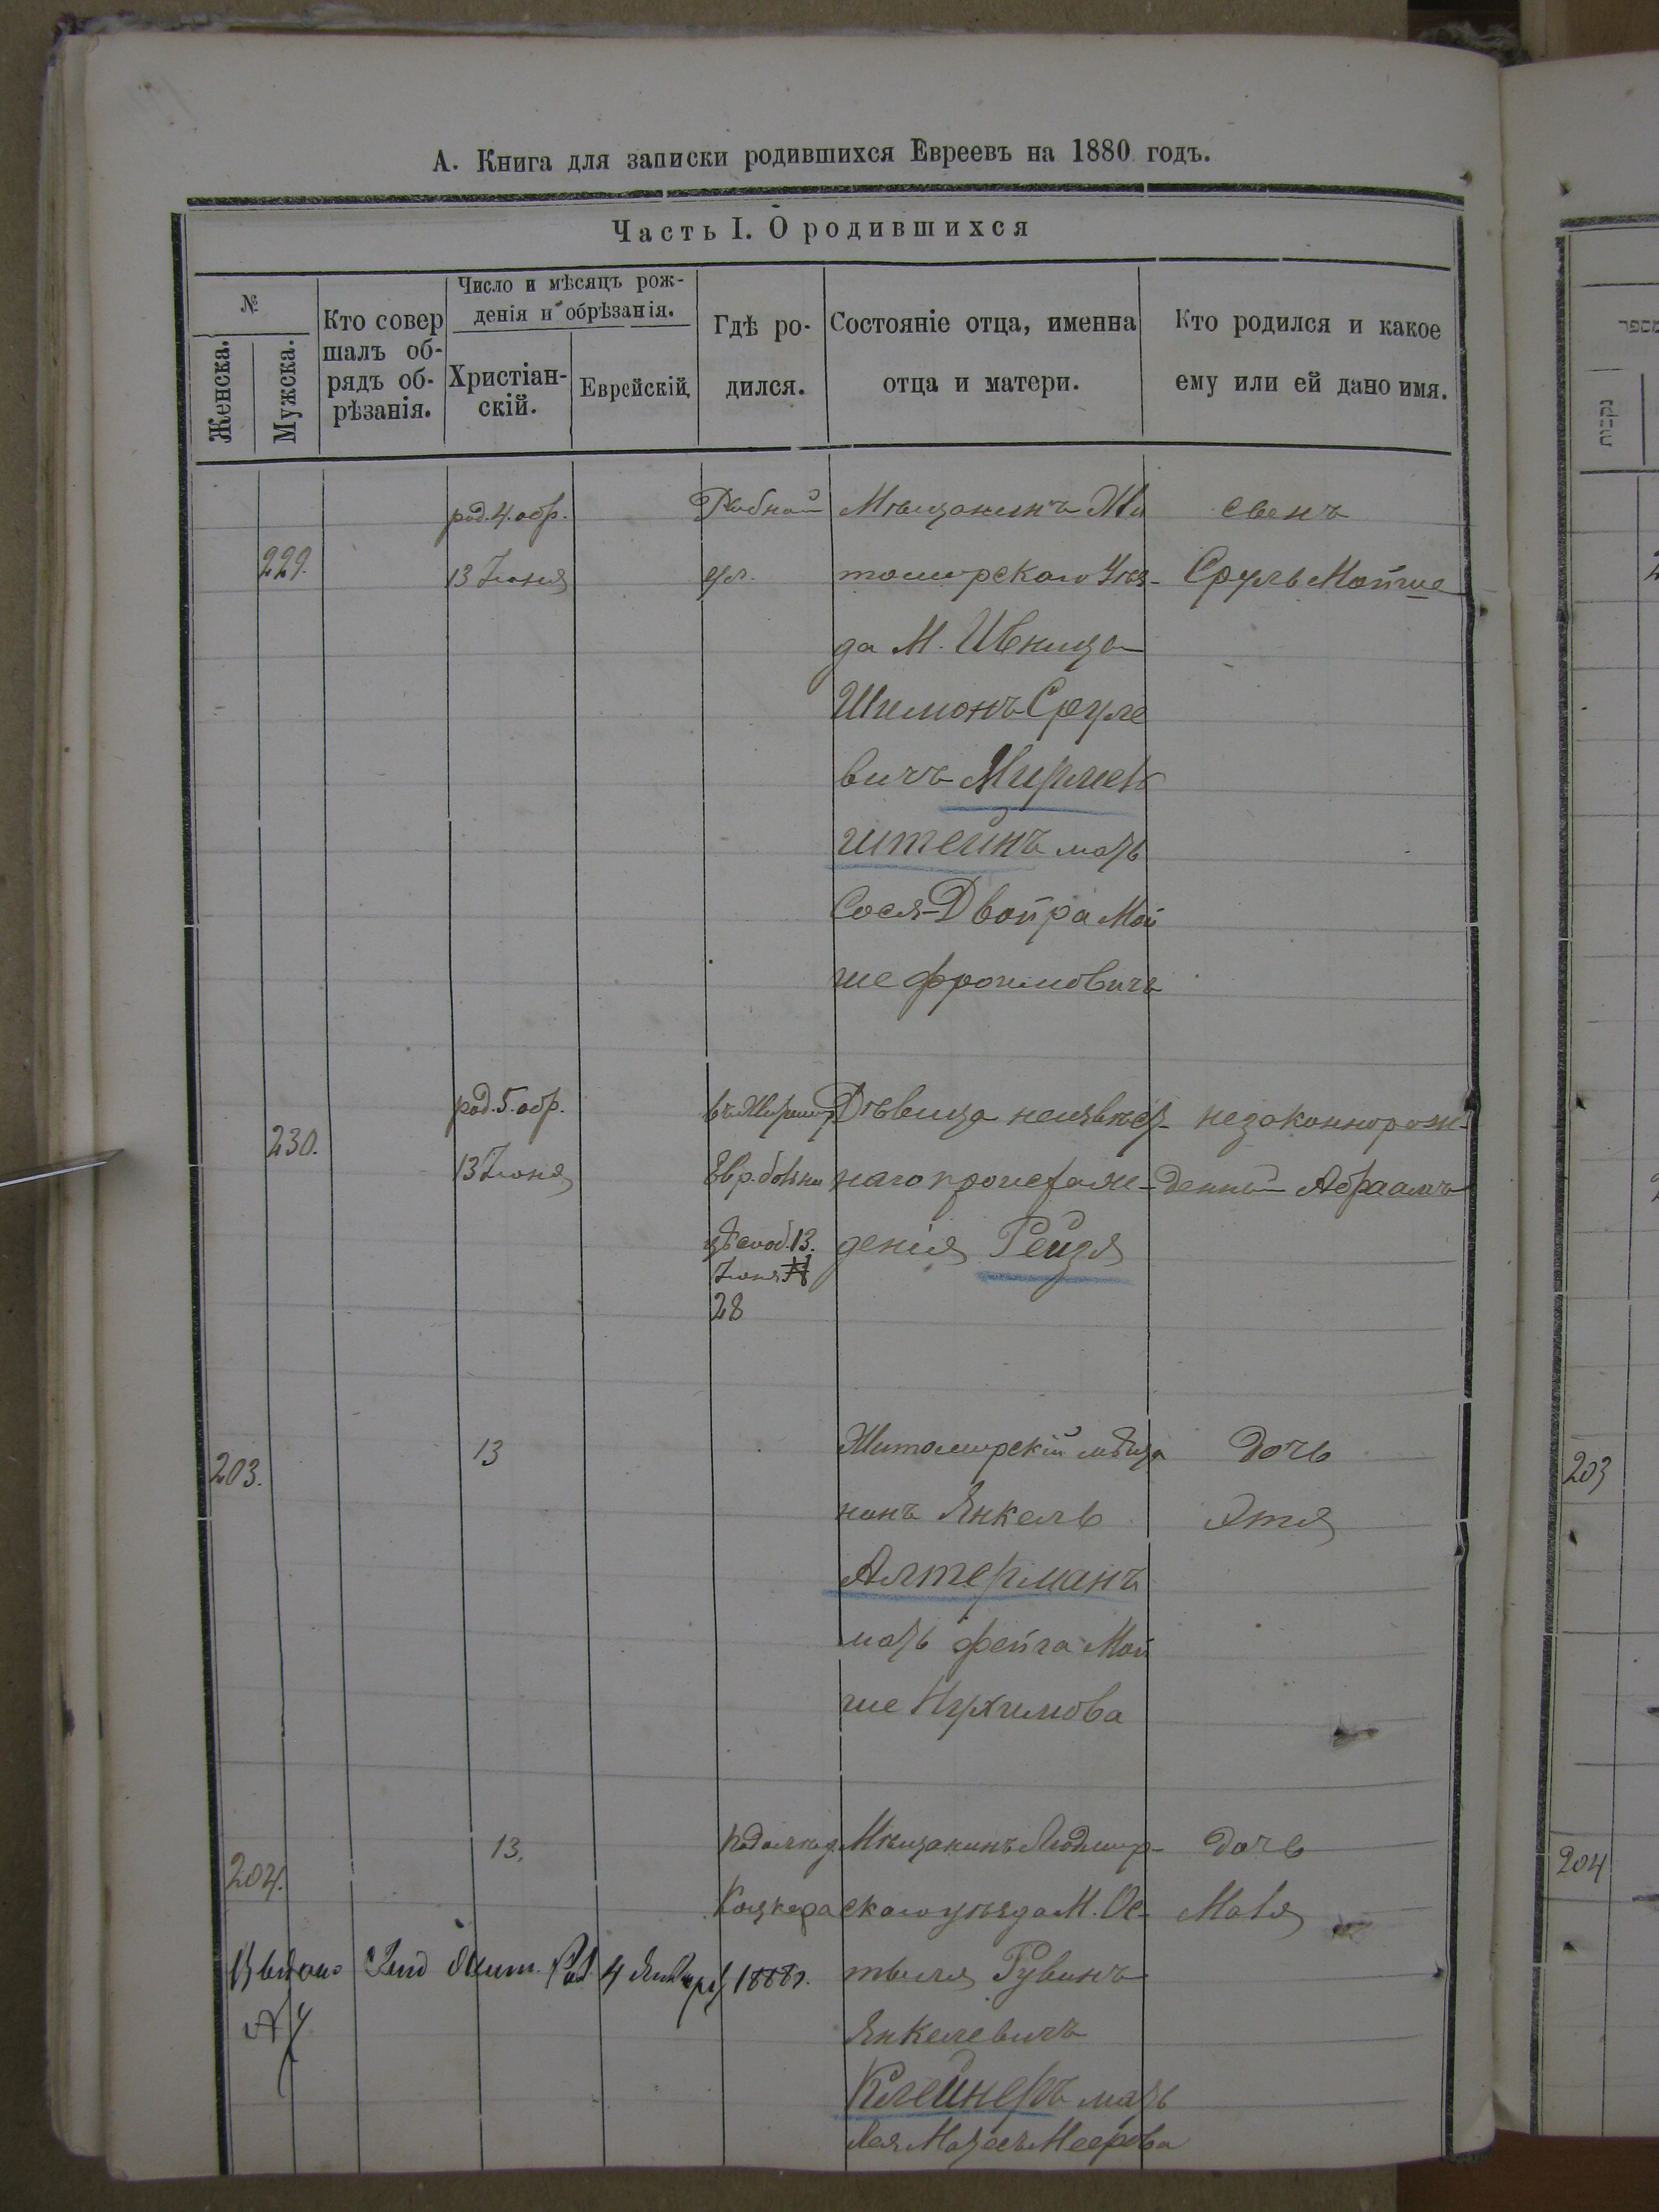 А. Книга для записки родившихся Евреевъ на 1880 годъ.
Часть I. О родившихся
№
Женска.
Мужска.
Кто совер
шалъ об-
рядъ об-
рѣзанія.
Число и мѣсяцъ рож-
денія и обрѣзанія.
Христіан-
скій.
Еврейскій
Гдѣ ро-
дился.
Состояніе отца, именна
отца и матери.
Кто родился и какое
ему или ей дано имя.
229.
род. 4. обр.
13 Іюня
Рыбной
ул.
Мѣщанинъ Жи
томирскаго Уѣз-
да М. Ивница
Шимонъ Сруле
вичъ Мирмен
штейнъ мать
Сося-Двойра Мой
ше Фроимовичъ
сынъ
Сруль Мойше
230.
род. 5. обр.
13 Іюня
въ Житомир
Евр. больни
цѣ сооб. 13.
Іюня №
28
Дѣвица неизвѣст-
наго происхож-
денія Рейзя
незаконнорож-
денный Абраамъ
203.
13
Житомирскій мѣща
нинъ Янкель
Алтерманъ
мать Фейга Мой
ше Нухимова
дочь
Этя
204.
13.
Кацкера
Мѣщанинъ
скаго уѣзда М. Ос-
Рувинъ
Янкелевичъ
Клейнеръ мать
Лея Меерова
дочь
Маля
Выдано
4 Января 1888 г.
203
204